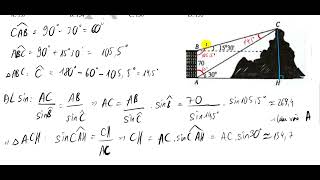 CÂB = 90° - 30° = 60°
ABC = 90° + 15°30' = 105,5°
△ABC: Ĉ = 180° - 60° - 105,5° = 14,5°
ĐL sin: AC / sin B̂ = AB / sin Ĉ ⇒ AC = AB / sin Ĉ . sin B̂ = 70 / sin 14,5° . sin 105,5° ≈ 269,4
△ACH: sin CÂH = CH / AC ⇒ CH = AC . sin CÂH = AC . sin 30° ≈ 134,7
C
14,5°
B
15°30'
105,5°
70
30°
A
H